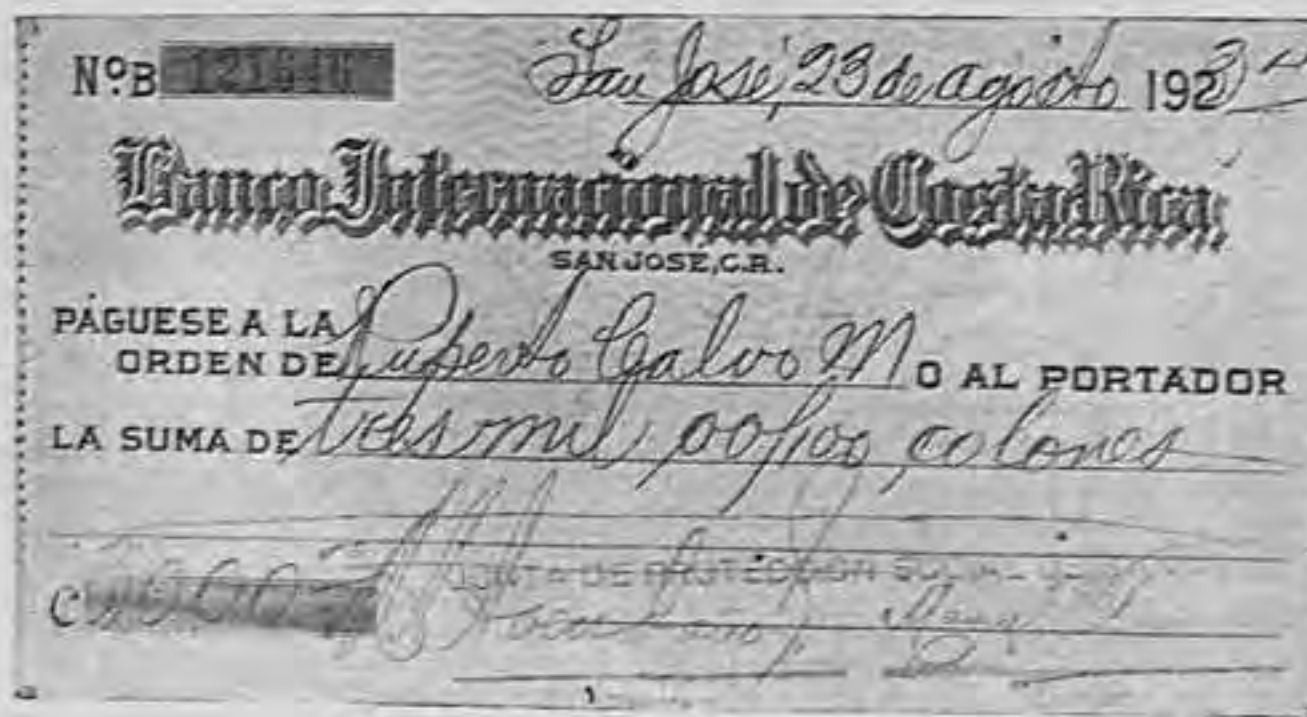 Nº B
San José, 23 de agosto 1923
Banco Internacional de Costa Rica
SAN JOSE, C.R.
PÁGUESE A LA
ORDEN DE Ruperto Calvo M O AL PORTADOR
LA SUMA DE tres mil 00/100 colones
JUNTA DE PROTECCION